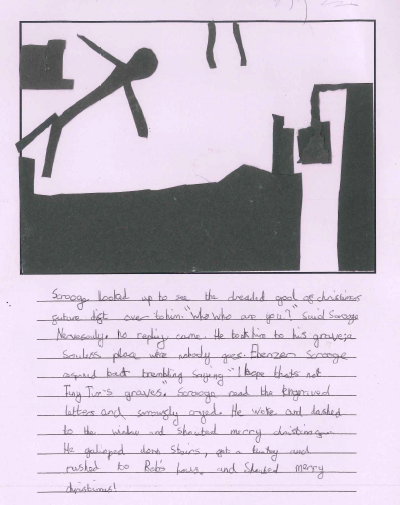 Scrooge looked up to see the dreaded gost of christmas
future drift over to him. "Who who are you?" Said Scrooge
Nervously. No replay came. He took him to his grave; a
Souless place were nobody goes. Ebenzer Scrooge
aspired but trembling saying "I hope thats not
Tiny Tim's graves." Scrooge read the Engraved
letters and cryed. He woke and dashed
to the window and Shouted merry christmas
He galloped down Stairs, got a turkey and
rushed to Bob's hous. and Shouted merry
christmas!